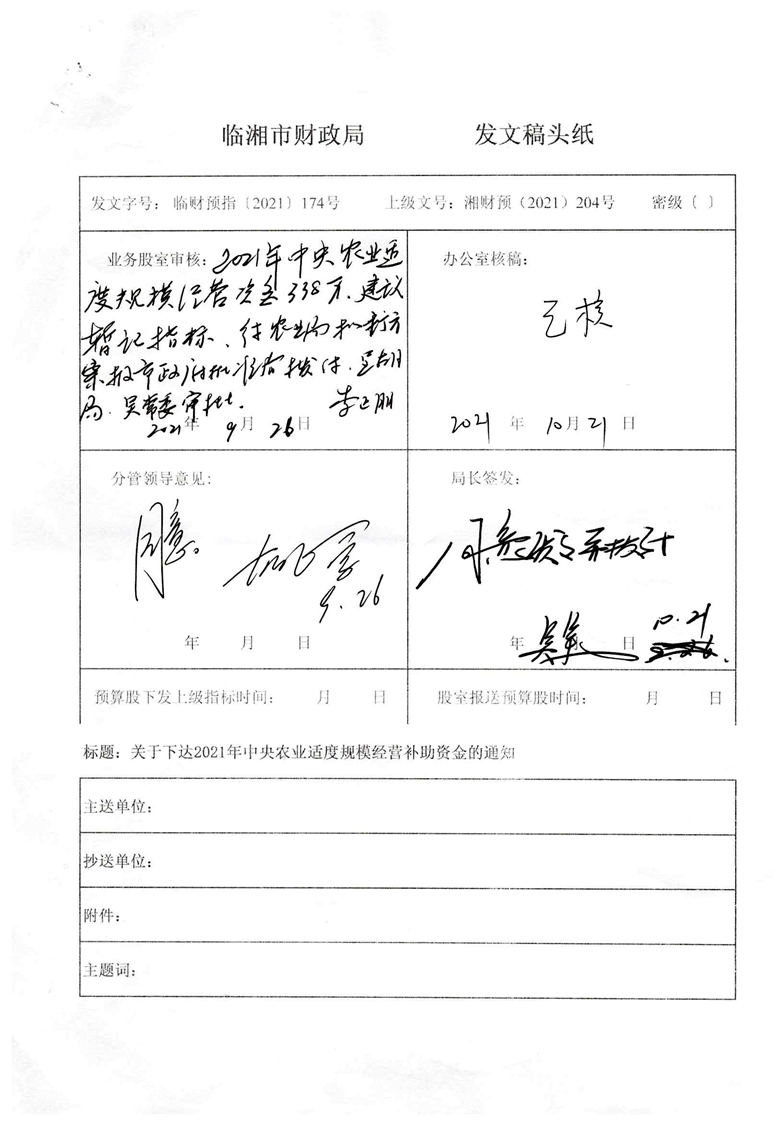 临湘市财政局 发文稿头纸
发文字号：临财预指〔2021〕174号 上级文号：湘财预（2021）204号 密级〔 〕
业务股室审核：2021年中央农业适
度规模经营资金338万，建议
暂记指标，待农业局拟新方
案报市政府批准后拨付，呈胡
局、吴常委审批。 李正朋
2021年 9月 26日
办公室核稿：
已核
2021 年 10月21日
分管领导意见：
同意。
9.26
年 月 日
局长签发：
10.21
年 日
预算股下发上级指标时间： 月 日
股室报送预算股时间： 月 日
标题：关于下达2021年中央农业适度规模经营补助资金的通知
主送单位：
抄送单位：
附件：
主题词：